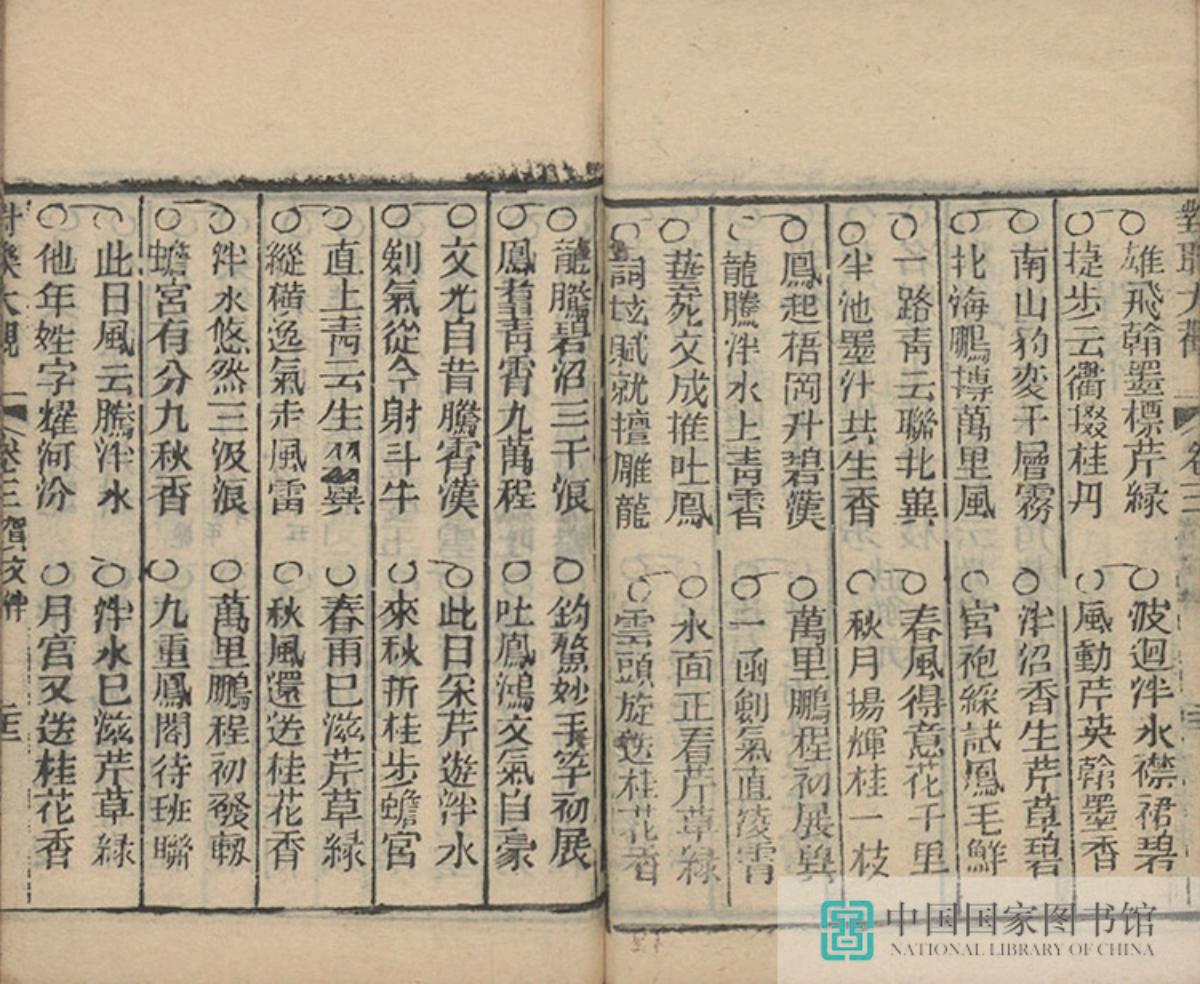 對聯大觀 卷三
○雄飛翰墨標芹緑 ○波迴泮水襟裙碧
○捷步云衢掇桂丹 ○風動芹英翰墨香
○南山豹変千層霧 ○泮沼香生芹草碧
○北海鵬摶萬里風 ○宮袍綵試鳳毛鮮
○一路青云聯北㠯 ○春風得意花千里
○半池墨汁共生香 ○秋月揚輝桂一枝
○鳳起梧岡升碧漢 ○萬里鵬程初展㠯
○龍騰泮水上青霄 ○一函劍氣直凌霄
○藝苑文成推吐鳳 ○水面正看芹草綠
○詞垓賦就擅雕龍 ○雲頭旋送桂花香
○龍騰碧沼三千浪 ○釣鰲妙手竿初展
○鳳翥青霄九萬程 ○吐鳳鴻文氣自豪
○文光自昔騰霄漢 ○此日采芹遊泮水
○劍氣從今射斗牛 ○來秋折桂步蟾宮
○直上青云生羽㠯 ○春雨巳滋芹草緑
○縱橫逸氣走風雷 ○秋風還送桂花香
○泮水悠然三汲浪 ○萬里鵬程初發軔
○蟾宮有分九秋香 ○九重鳳閣待班聯
○此日風云騰泮水 ○泮水巳滋芹草緑
○他年姓字耀河汾 ○月宮又送桂花香
對聯大觀 卷三 賀文泮
中国国家图书馆
NATIONAL LIBRARY OF CHINA